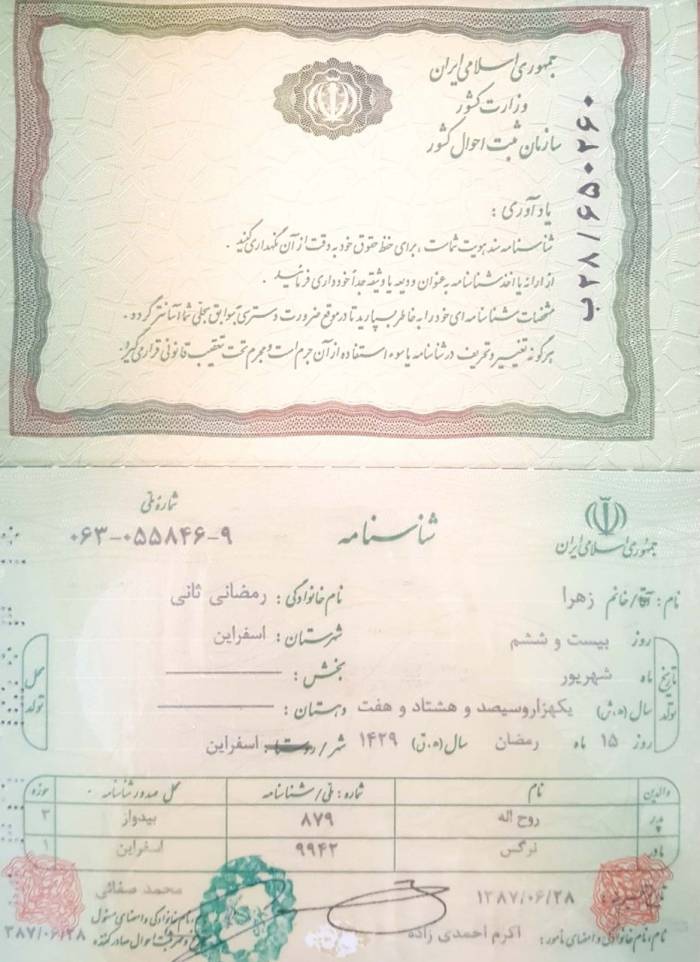 جمهوری اسلامی ایران
وزارت کشور
سازمان ثبت احوال کشور
ب۲۸/۶۵۰۲۶۰
یادآوری :
شناسنامه سند هویت شماست ، برای حفظ حقوق خود به دقت از آن نگهداری کنید .
از ارائه یا اخذ شناسنامه به عنوان ودیعه یا وثیقه جداً خودداری فرمائید .
مشخصات شناسنامه ای خود را به خاطر بسپارید تا در موقع ضرورت دسترسی به سوابق سجلی شما آسانتر گردد .
هرگونه تغییر و تحریف در شناسنامه یا سوء استفاده از آن جرم است و مجرم تحت تعقیب قانونی قرار می گیرد.
جمهوری اسلامی ایران
شناسنامه
شماره ملی
۰۶۳-۰۵۵۸۴۶-۹
نام : آقا/خانم زهرا نام خانوادگی : رمضانی ثانی
تاریخ تولد
روز بیست و ششم شهرستان : اسفراین
ماه شهریور بخش :
سال (ه.ش) یکهزاروسیصد و هشتاد و هفت دهستان :
روز ۱۵ ماه رمضان سال (ه.ق) ۱۴۲۹ شهر/روستا : اسفراین
محل تولد
والدین نام شماره : ملی/شناسنامه محل صدور شناسنامه حوزه
پدر روح اله ۸۷۹ بیدواز ۳
مادر نرگس ۹۹۴۲ اسفراین ۱
۱۳۸۷/۰۶/۲۸ محمد صفائی
نام، نام خانوادگی و امضای مأمور : اکرم احمدی زاده
نام، نام خانوادگی و امضای مسئول
۳۸۷/۰۶/۲۸